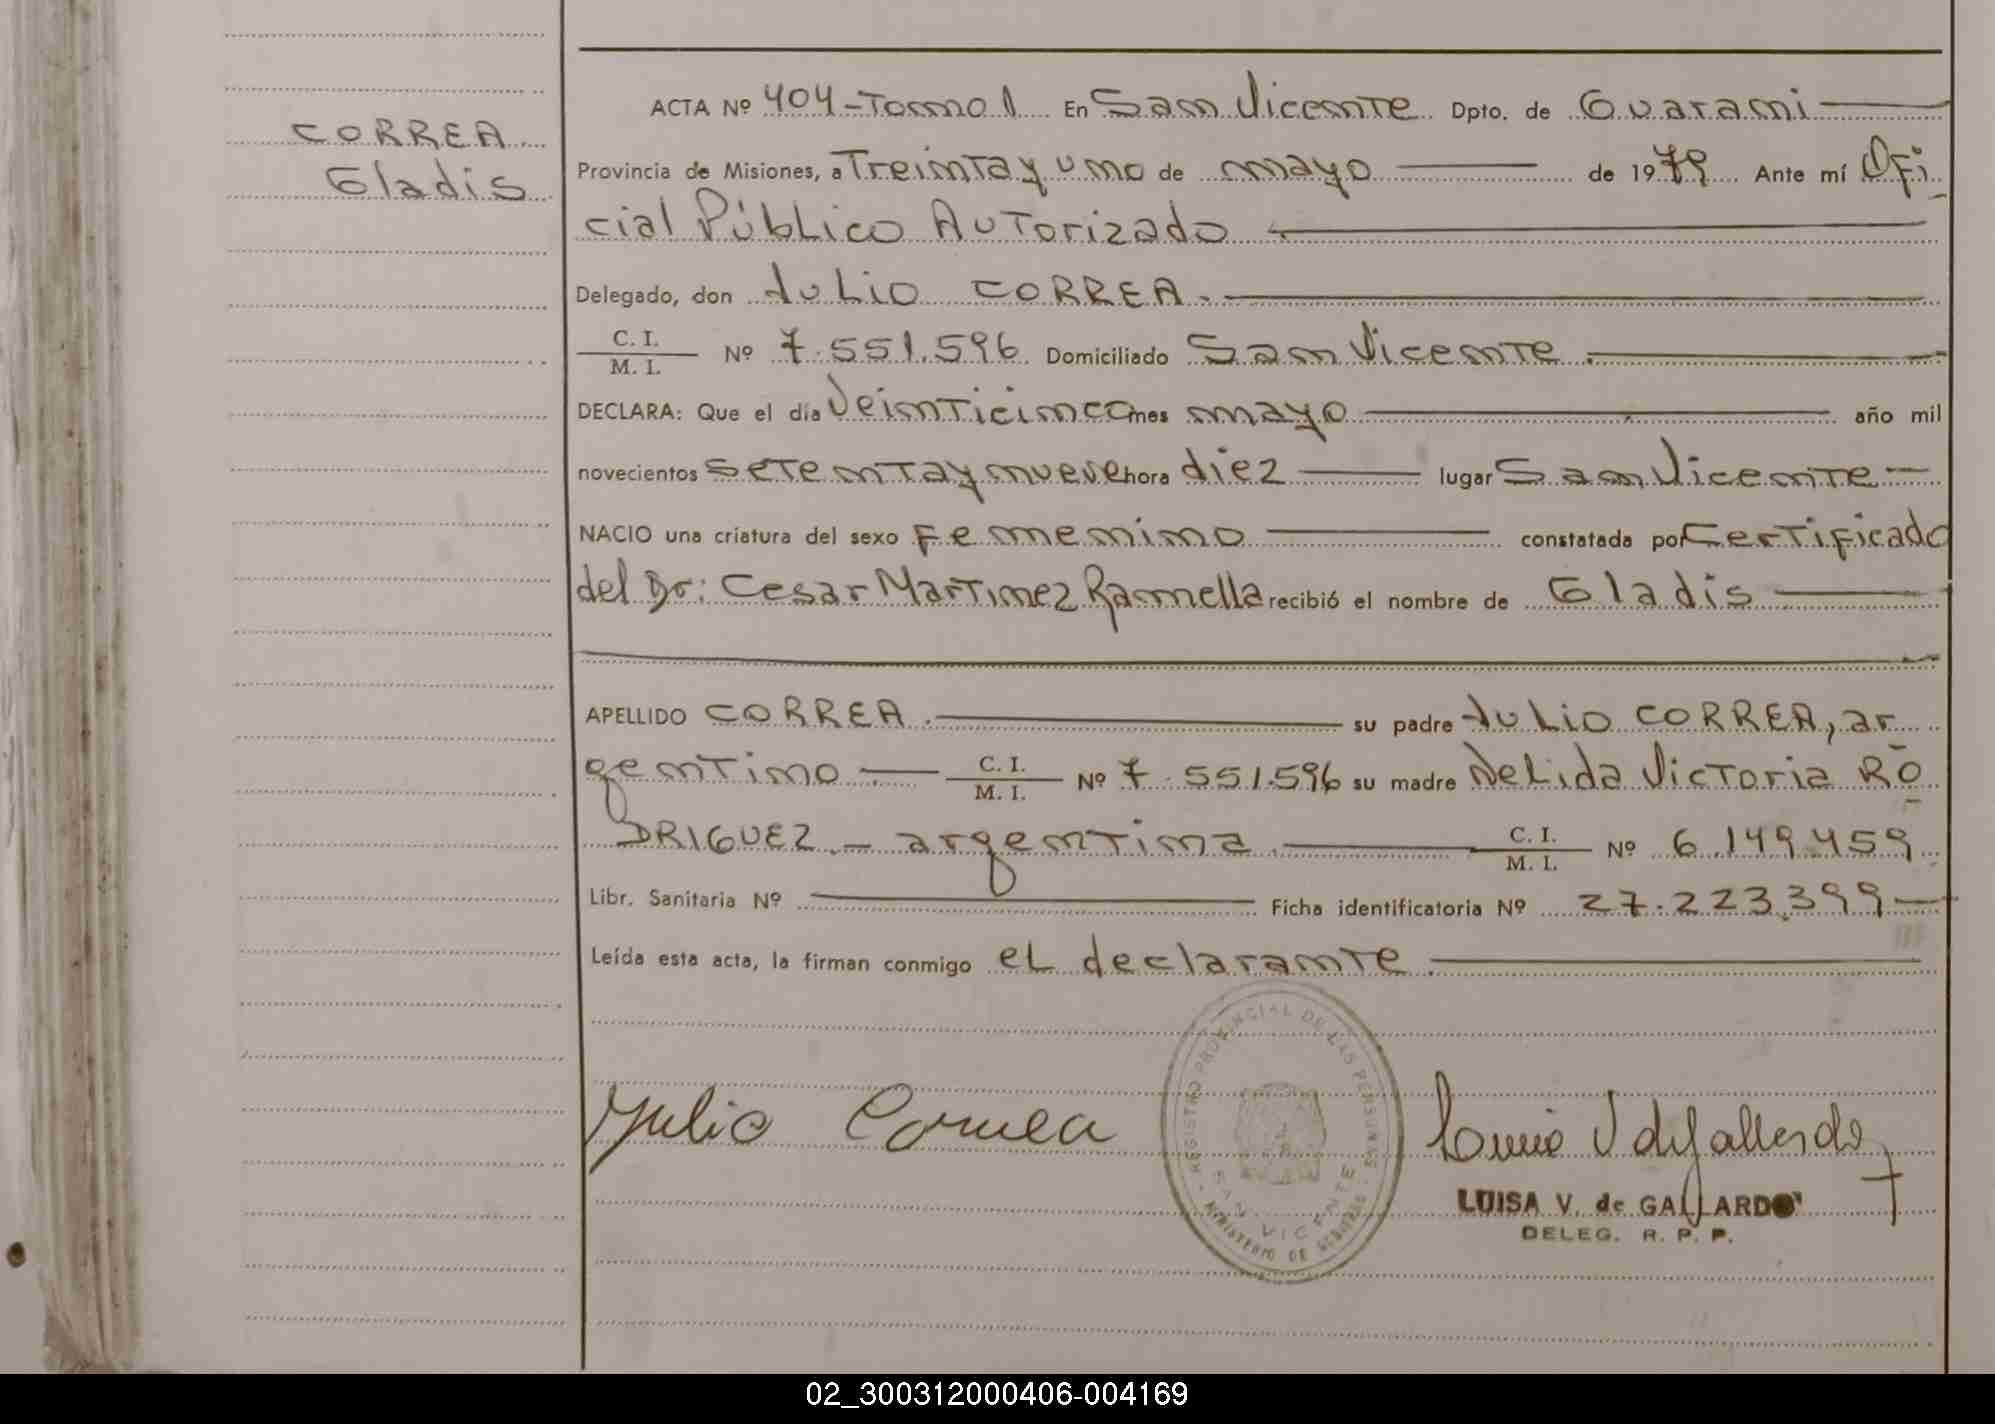 CORREA
Gladis
ACTA Nº 404-Tomo 1 En San Vicente Dpto. de Guarani
Provincia de Misiones, a Treinta y uno de mayo de 1979 Ante mí Ofi
cial Público Autorizado
Delegado, don Julio CORREA.
C. I.
M. I. Nº 7.551.596 Domiciliado San Vicente.
DECLARA: Que el día Veinticinco mes mayo año mil
novecientos setenta y nueve hora diez lugar San Vicente
NACIO una criatura del sexo Femenino constatada por Certificado
del Dr: Cesar Martinez Ramella recibió el nombre de Gladis
APELLIDO CORREA. su padre Julio CORREA, ar
gentino C. I.
M. I. Nº 7.551.596 su madre Nelida Victoria RO
DRIGUEZ.- argentina. C. I.
M. I. Nº 6.149.459
Libr. Sanitaria Nº Ficha identificatoria Nº 27.223.399-
Leída esta acta, la firman conmigo el declarante.
REGISTRO PROVINCIAL DE LAS PERSONAS
SAN VICENTE
MINISTERIO DE GOBIERNO
Julio Correa
Luisa V de Gallardo
LUISA V. de GALLARDO
DELEG. R. P. P.
02_300312000406-004169